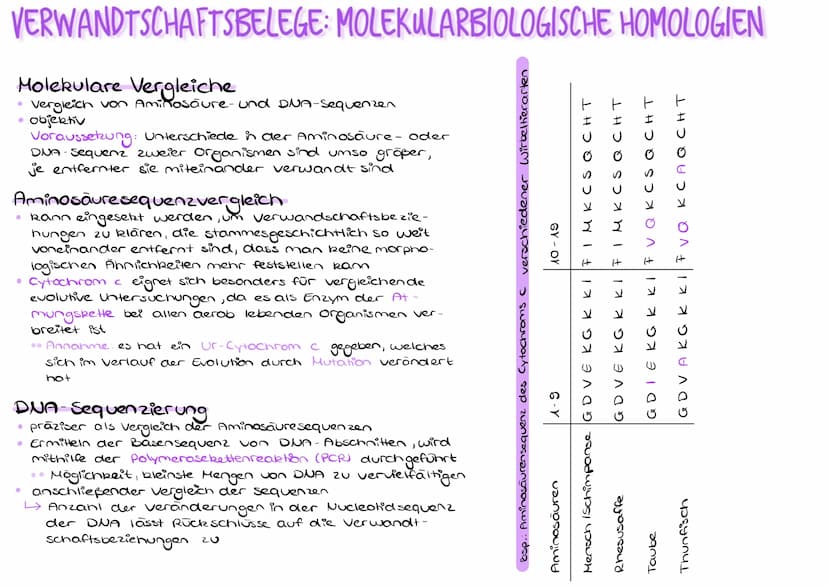 VERWANDTSCHAFTSBELEGE: MOLEKULARBIOLOGISCHE HOMOLOGIEN
Molekulare Vergleiche
• Vergleich von Aminosäure- und DNA-Sequenzen
• objektiv
Voraussetzung: Unterschiede in der Aminosäure- oder
DNA-Sequenz zweier Organismen sind umso größer,
je entfernter sie miteinander verwandt sind
Aminosäuresequenzvergleich
• kann eingesetzt werden, um Verwandschaftsbezie-
hungen zu klären, die stammesgeschichtlich so weit
voneinander entfernt sind, dass man keine morpho-
logischen Ähnlichkeiten mehr feststellen kann
• Cytochrom c eignet sich besonders für vergleichende
evolutive Untersuchungen, da es als Enzym der At-
mungskette bei allen aerob lebenden Organismen ver-
breitet ist
•• Annahme: es hat ein Ur-Cytochrom c gegeben, welches
sich im Verlauf der Evolution durch Mutation verändert
hat
DNA-Sequenzierung
• präziser als Vergleich der Aminosäuresequenzen
• Ermitteln der Basensequenz von DNA-Abschnitten, wird
mithilfe der Polymerasekettenreaktion (PCR) durchgeführt
•• Möglichkeit, kleinste Mengen von DNA zu vervielfältigen
• anschließender Vergleich der Sequenzen
↳ Anzahl der Veränderungen in der Nucleotidsequenz
der DNA lässt Rückschlüsse auf die Verwandt-
schaftsbeziehungen zu
bsp.: Aminosäurensequenz des Cytochroms c verschiedener Wirbeltierarten
Aminosäuren 1-9 10-19
Mensch/Schimpanse G D V E K G K K I F I M K C S Q C H T
Rhesusaffe G D V E K G K K I F I M K C S Q C H T
Taube G D I E K G K K I F V Q K C S Q C H T
Thunfisch G D V A K G K K I F V Q K C A Q C H T